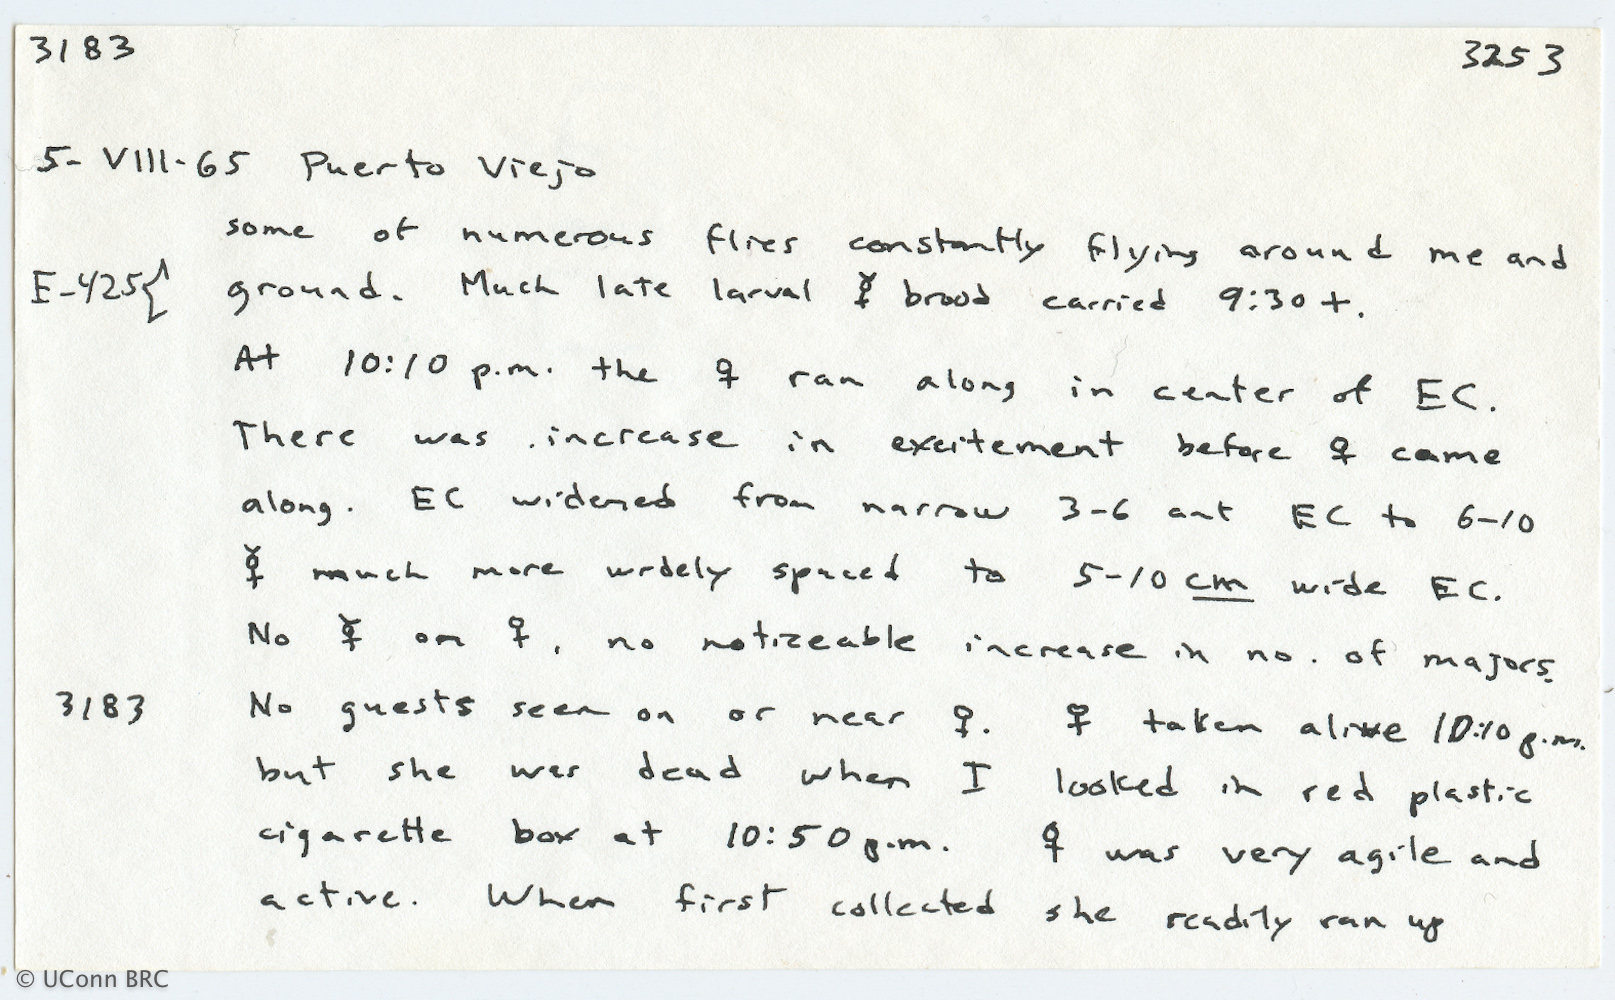 3183 3253
5-VIII-65 Puerto Viejo
some of numerous flies constantly flying around me and
E-425{ ground. Much late larval ☿ brood carried 9:30+.
At 10:10 p.m. the ♀ ran along in center of EC.
There was increase in excitement before ♀ came
along. EC widened from narrow 3-6 ant EC to 6-10
☿ much more widely spaced to 5-10 cm wide EC.
No ☿ on ♀, no noticeable increase in no. of majors.
3183 No guests seen on or near ♀. ♀ taken alive 10:10 p.m.
but she was dead when I looked in red plastic
cigarette box at 10:50 p.m. ♀ was very agile and
active. When first collected she readily ran up
© UConn BRC